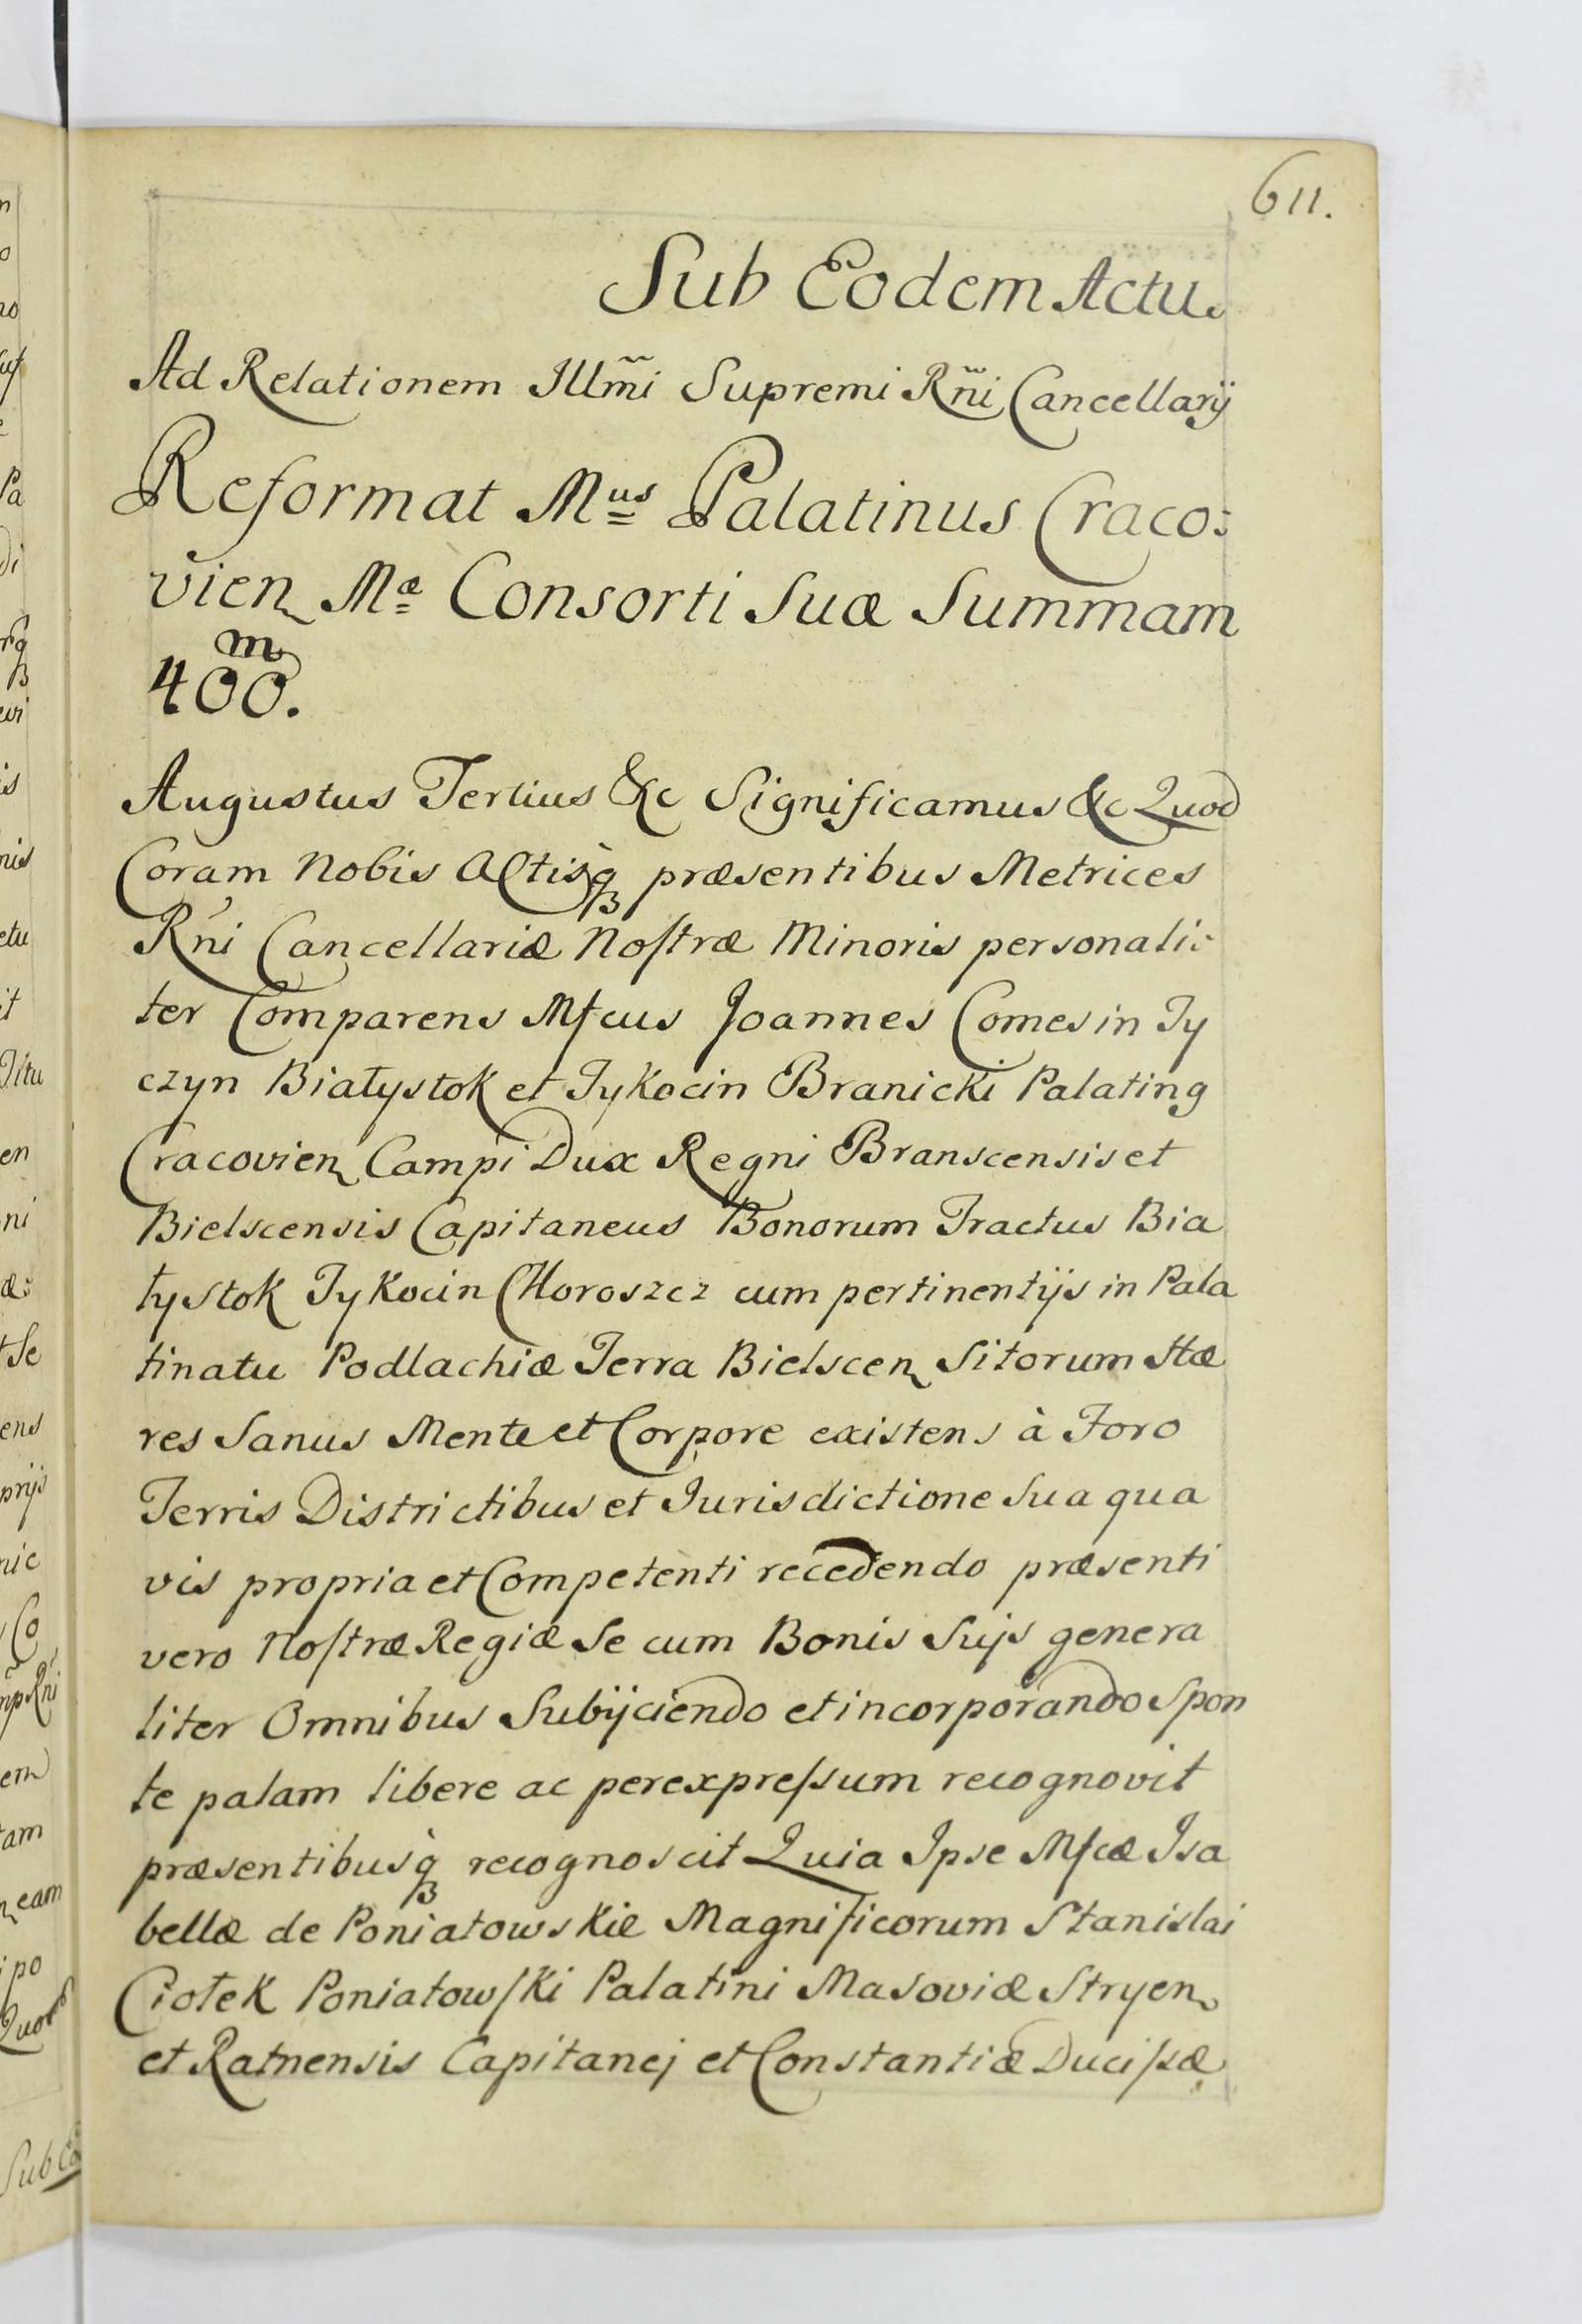 611.
Sub Eodem Actu.
Ad Relationem Illm̃i Supremi Rñi Cancellarij
Reformat Mus Palatinus Craco:
vien Mæ Consorti Suæ Summam
m
400.
Augustus Tertius &c Significamus &c Quod
Coram Nobis Actisq̀ præsentibus Metrices
Rńi Cancellariæ Nostræ Minoris personali:
ter Comparens Mfcus Joannes Comes in Ty
czyn Białystok et Tykocin Branicki Palating
Cracovien Campi Dux Regni Branscensis et
Bielscensis Capitaneus Bonorum Tractus Bia
łystok Tykocin CHoroszcz cum pertinentijs in Pala
tinatu Podlachiæ Terra Bielscen Sitorum Hæ
res Sanus Mente et Corpore existens à Foro
Terris Districtibus et Jurisdictione Sua qua
vis propria et Competenti recedendo præsenti
vero Nostræ Regiæ Se cum Bonis Suijs genera
liter Omnibus Subijciendo et incorporando Spon
te palam libere ac perexpressum recognovit
præsentibusq̀ recognoscit Quia Ipse Mfcæ Isa
bellæ de Poniatowskie Magnificorum Stanislai
Ciołek Poniatowski Palatini Masoviæ Stryen
et Ratnensis Capitanej et Constantiæ Ducissæ